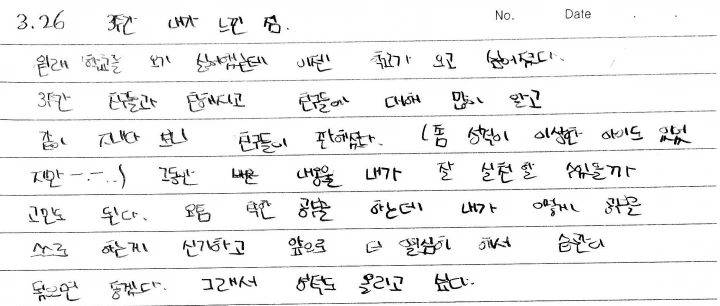 3.26 3주간 내가 느낀 점. No. Date . .
원래 학교를 오기 싫어했는데 이젠 학교가 오고 싶어졌다.
3주간 친구들과 친해지고 친구들에 대해 많이 알고
같이 지내다 보니 친구들이 편해졌다. (좀 성격이 이상한 아이도 있었
지만 -.-..) 그동안 배운 내용을 내가 잘 실천할 수있을까
고민도 된다. 요즘 학원 공부를 하는데 내가 이렇게 공부를
스스로 하는게 신기하고 앞으로 더 열심히 해서 습관이
됬으면 좋겠다. 그래서 성적도 올리고 싶다.